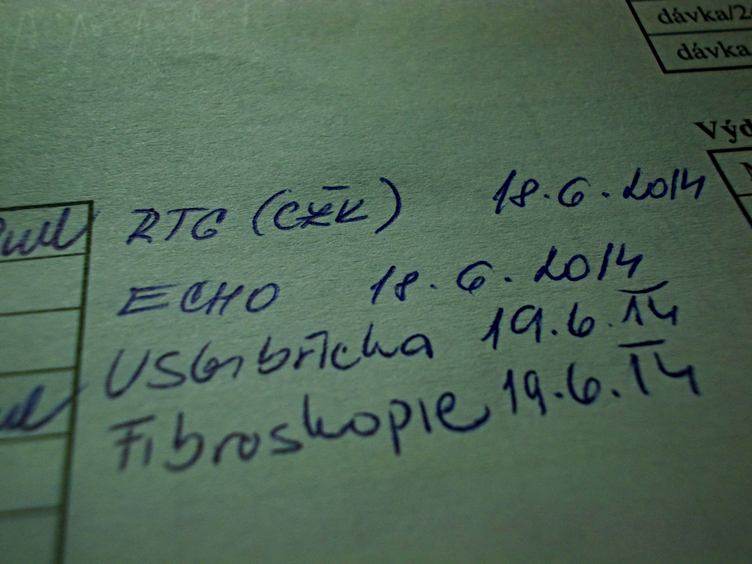 dávka/2
dávka
Výd
RTG (CŽK) 18.6.2014
ECHO 18.6.2014
USG břicha 19.6.14
Fibroskopie 19.6.14